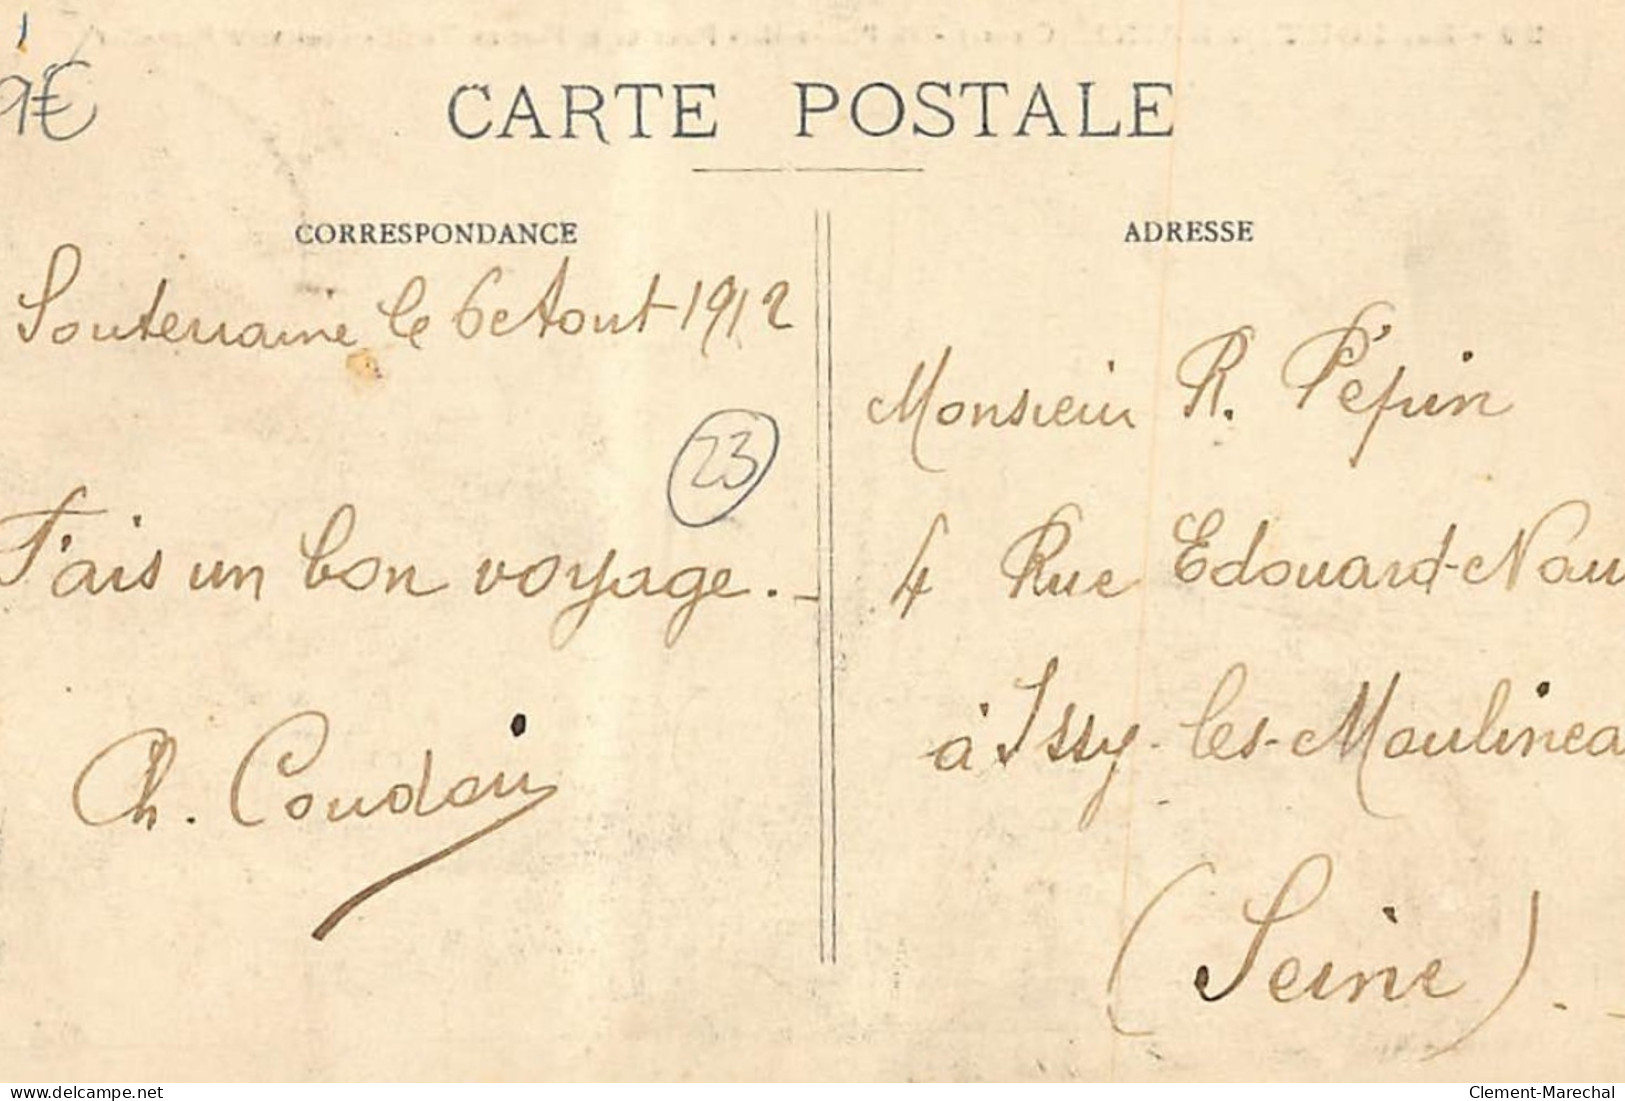 9€
CARTE POSTALE
CORRESPONDANCE
Souterraine le 6 Aout 1912
23
Fais un bon voyage. _
Ch.
ADRESSE
Monsieur R. Pépin
4 Rue Edouard-Nau
à Issy-les-Moulinea
(Seine). _
delcampe.net
Clement-Marechal